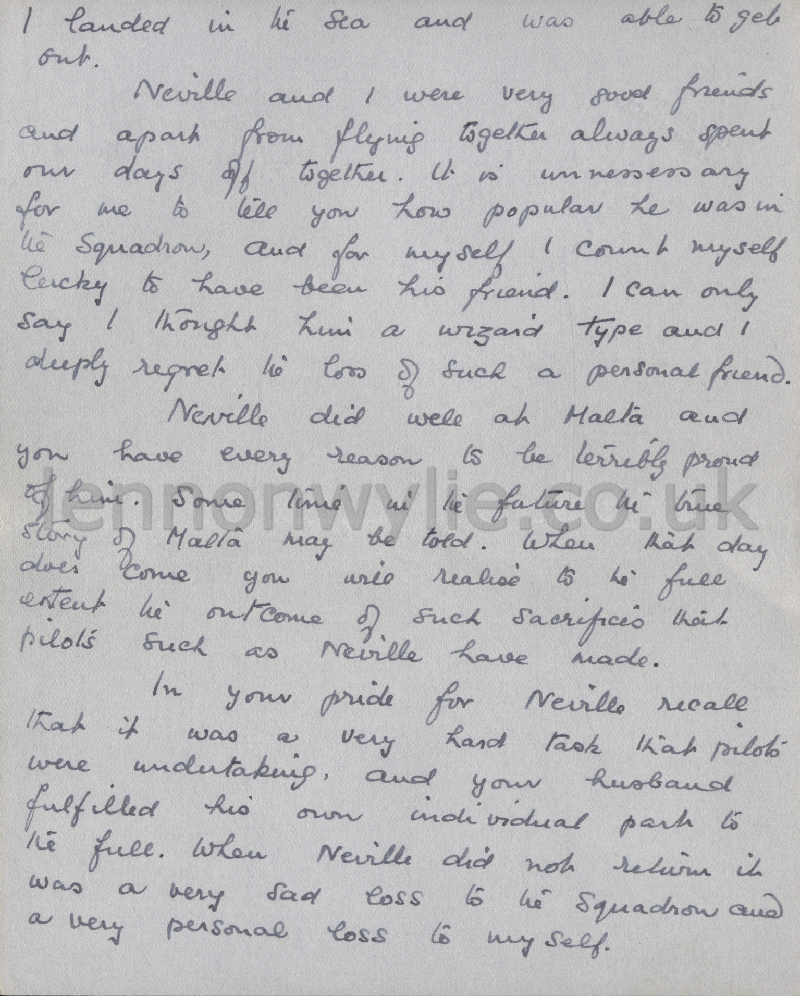 I landed in the sea and was able to get
out.
Neville and I were very good friends
and apart from flying together always spent
our days off together. It is unnessessary
for me to tell you how popular he was in
the Squadron, and for myself I count myself
lucky to have been his friend. I can only
say I thought him a wizard type and I
deeply regret the loss of such a personal friend.
Neville did well at Malta and
you have every reason to be terribly proud
of him. Some time in the future the true
story of Malta may be told. When that day
does come you will realise to the full
extent the outcome of such sacrifices that
pilots such as Neville have made.
In your pride for Neville recall
that it was a very hard task that pilots
were undertaking, and your husband
fulfilled his own individual part to
the full. When Neville did not return it
was a very sad loss to the Squadron and
a very personal loss to myself.
lennonwylie.co.uk